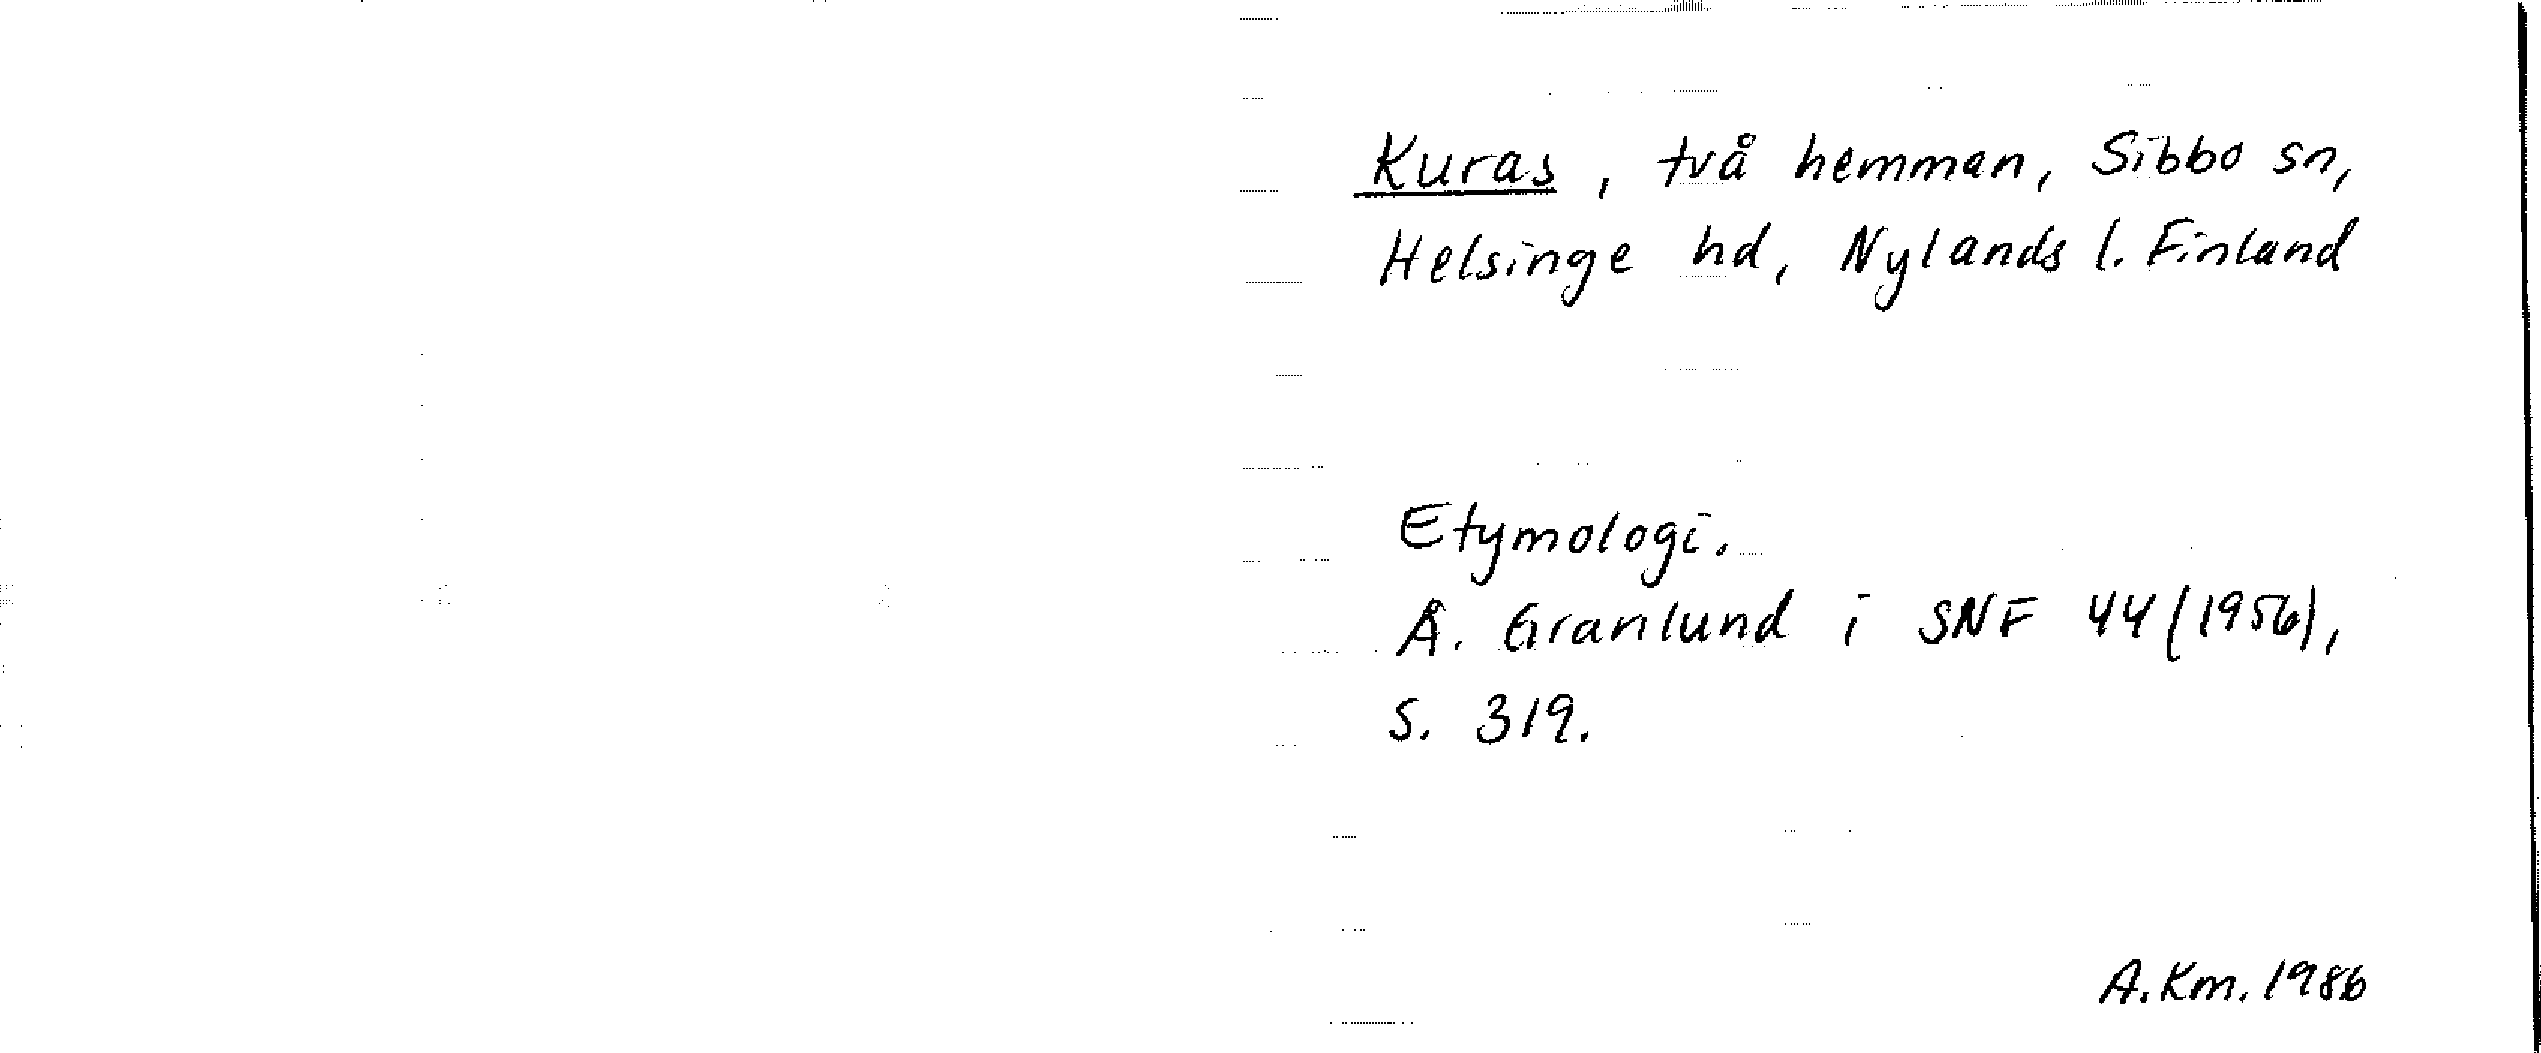 Kuras, två hemman, Sibbo sn,
Helsinge hd, Nylands l. Finland
Etymologi.
Å. Granlund i SNF 44 (1956),
S. 319.
A.Km. 1986